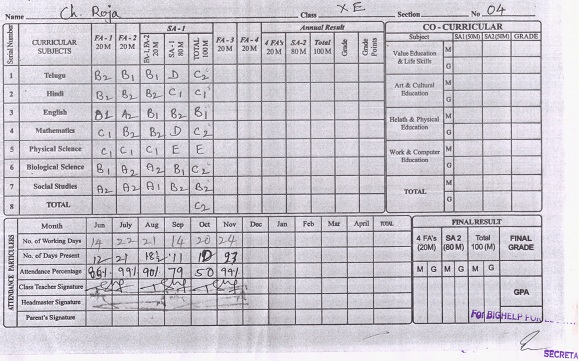 Name Ch. Roja Class X E Section No 04
Serial Number CURRICULAR SUBJECTS FA-1 20 M FA-2 20 M FA-1,FA-2 20 M SA-1 SA-1 80 M TOTAL 100 M Annual Result FA-3 20 M FA-4 20 M 4 FA's 20 M SA-2 80 M Total 100 M Grade Grade Points
1 Telugu B2 B1 B1 D C2
2 Hindi B2 B2 B2 C1 C1
3 English A2 B1 B2 B1
4 Mathematics C1 B2 B2 D C2
5 Physical Science C1 C1 C1 E E
6 Biological Science B1 A2 A2 B1 C2
7 Social Studies A2 A2 A1 B2 B2
8 TOTAL C2
CO - CURRICULAR
Subject SA1 (50M) SA2 (50M) GRADE
Value Education & Life Skills M G
Art & Cultural Education M G
Helath & Physical Education M G
Work & Computer Education M G
TOTAL M G
ATTENDANCE PARTICULERS
Month Jun July Aug Sep Oct Nov Dec Jan Feb Mar April TOTAL
No. of Working Days 14 22 21 14 20 24
No. of Days Present 12 21 18½ 11 23
Attendance Percentage 99% 90% 79 50 99%
Class Teacher Signature
Headmaster Signature
Parent's Signature
FINAL RESULT
4 FA's (20M) SA 2 (80 M) Total 100 (M) FINAL GRADE
M G M G M G
GPA
For BIGHELP
SECRETA